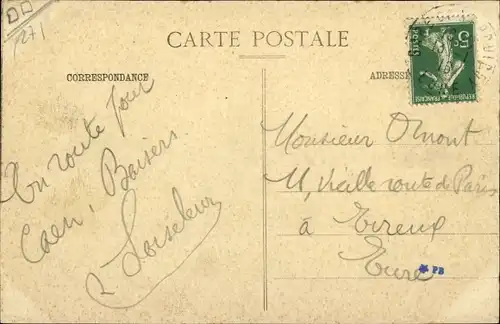 271
CARTE POSTALE
CORRESPONDANCE
ADRESSE
En route pour
Caen, Baisers
Loiseleur
Monsieur Omont
11, vieille route de Paris
à Evreux
Eure
PB
5c
POSTES
REPUBLIQUE FRANÇAISE